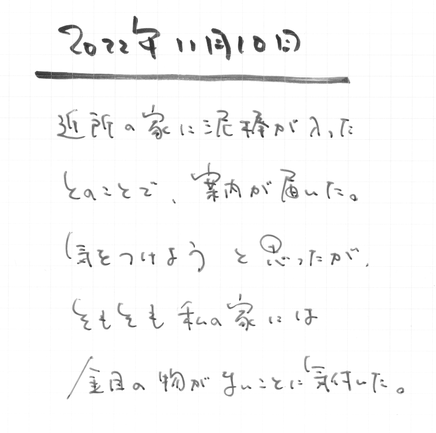 2022年11月10日
近所の家に泥棒が入った
とのことで、案内が届いた。
気をつけようと思ったが、
そもそも私の家には
金目の物がないことに気付いた。